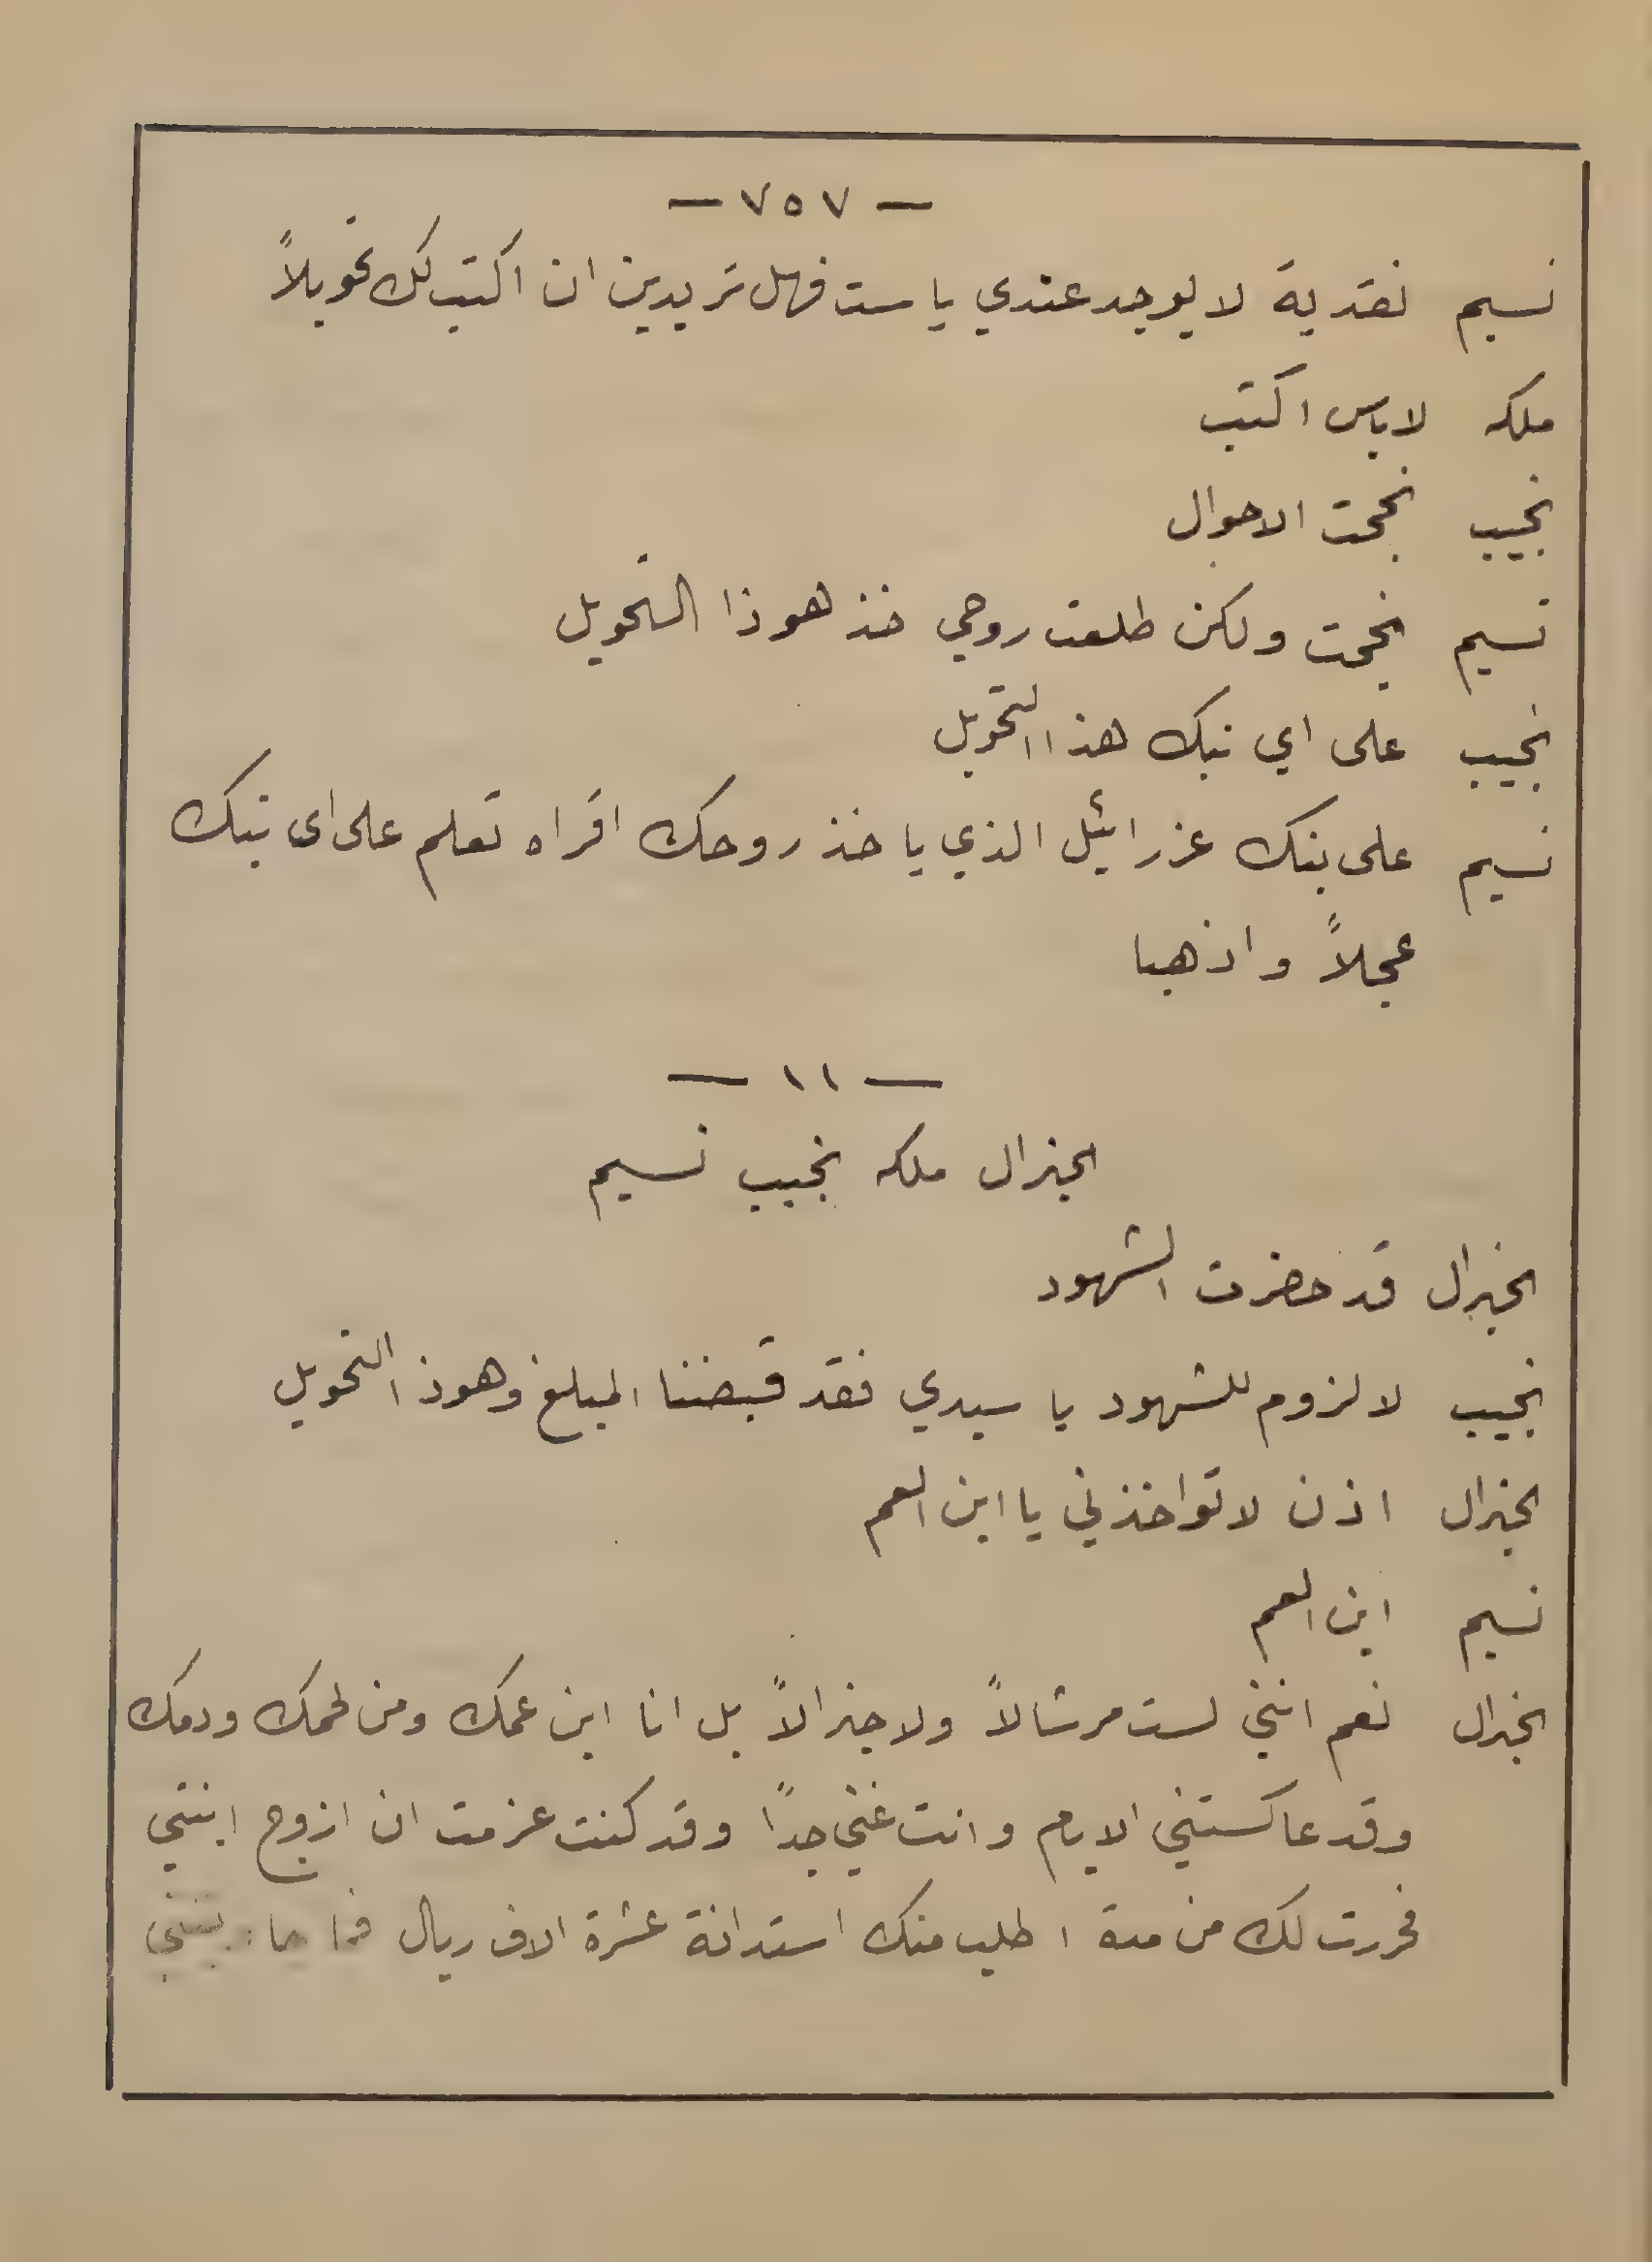 — ٧٥٧ —
نسيم نقدية لا يوجد عندي يا ست فهل تريدين ان اكتب لك تحويلاً
ملكه لا باس اكتب
نجيب نجحت الاحوال
نسيم نجحت ولكن طلعت روحي خذ هوذا التحويل
نجيب على اي بنك هذا التحويل
نسيم على بنك عزرائيل الذي ياخذ روحك اقراه تعلم على اى بنك
عجلاً واذهبا
— ١١ —
الجنرال ملكه نجيب نسيم
الجنرال قد حضرت الشهود
نجيب لا لزوم للشهود يا سيدي فقد قبضنا المبلغ وهوذا التحويل
الجنرال اذن لا تواخذني يا ابن العم
نسيم ابن العم
الجنرال نعم انني لست مرشالاً ولا جنرالاً بل انا ابن عمك ومن لحمك ودمك
وقد عاكستني الايام وانت غني جداً وقد كنت عزمت ان ازوج ابنتي
فحررت لك من مدة اطلب منك استدانة عشرة الاف ريال فما